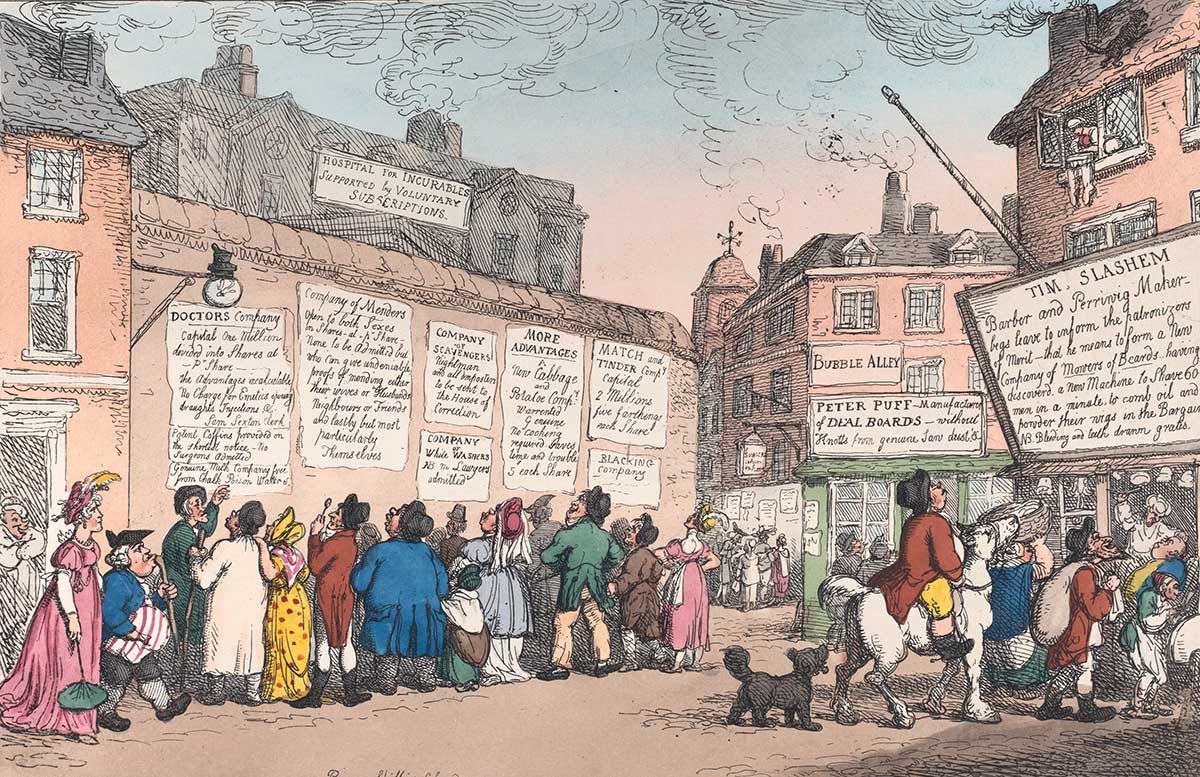 HOSPITAL FOR INCURABLES
SUPPORTED by VOLUNTARY
SUBSCRIPTIONS.
DOCTORS Company
Capital One Million
divided into Shares at
— P Share —
the Advantages incalculable
No Charge for Emetics opening
draughts Injections &c.
Sam Sexton Clerk
Patent Coffins provided on
the shortest notice - No
Surgeons Admitted
Genuine Milk Company free
from Chalk Poison Water &c
Company of Menders
Open to both Sexes
in Share - at - P Share -
None to be Admitted but
who can give undeniable
proofs of mending either
their wives or Husbands
Neighbours or Friends
and lastly but most
particularly
Themselves
COMPANY
of SCAVENGERS
Nightman
and all Imposters
to be sent to
the House of
Correction
COMPANY
White WASHERS
NB no Lawyers
admitted
MORE
ADVANTAGES
New Cabbage
and
Potatoe Compy.
Warrented
Genuine
No cooking
required saves
time and trouble
5 each Share
MATCH and
TINDER Compy.
Capital
2 Millions
five farthengs
each Share
BLACKING
Company
BUBBLE ALLEY
PETER PUFF - Manufactory
of DEAL BOARDS - without
Knotts from genuine Saw dust, &.
TIM, SLASHEM
Barber and Perriwig Maker-
begs leave to inform the patronizers
of Merit - that he means to form a New
Company of Mowers of Beards - having
discoverd a New Machine to Shave 60
men in a minute. to comb oil and
powder their wigs in the Bargain
NB. Bleeding and teeth drawn gratis.